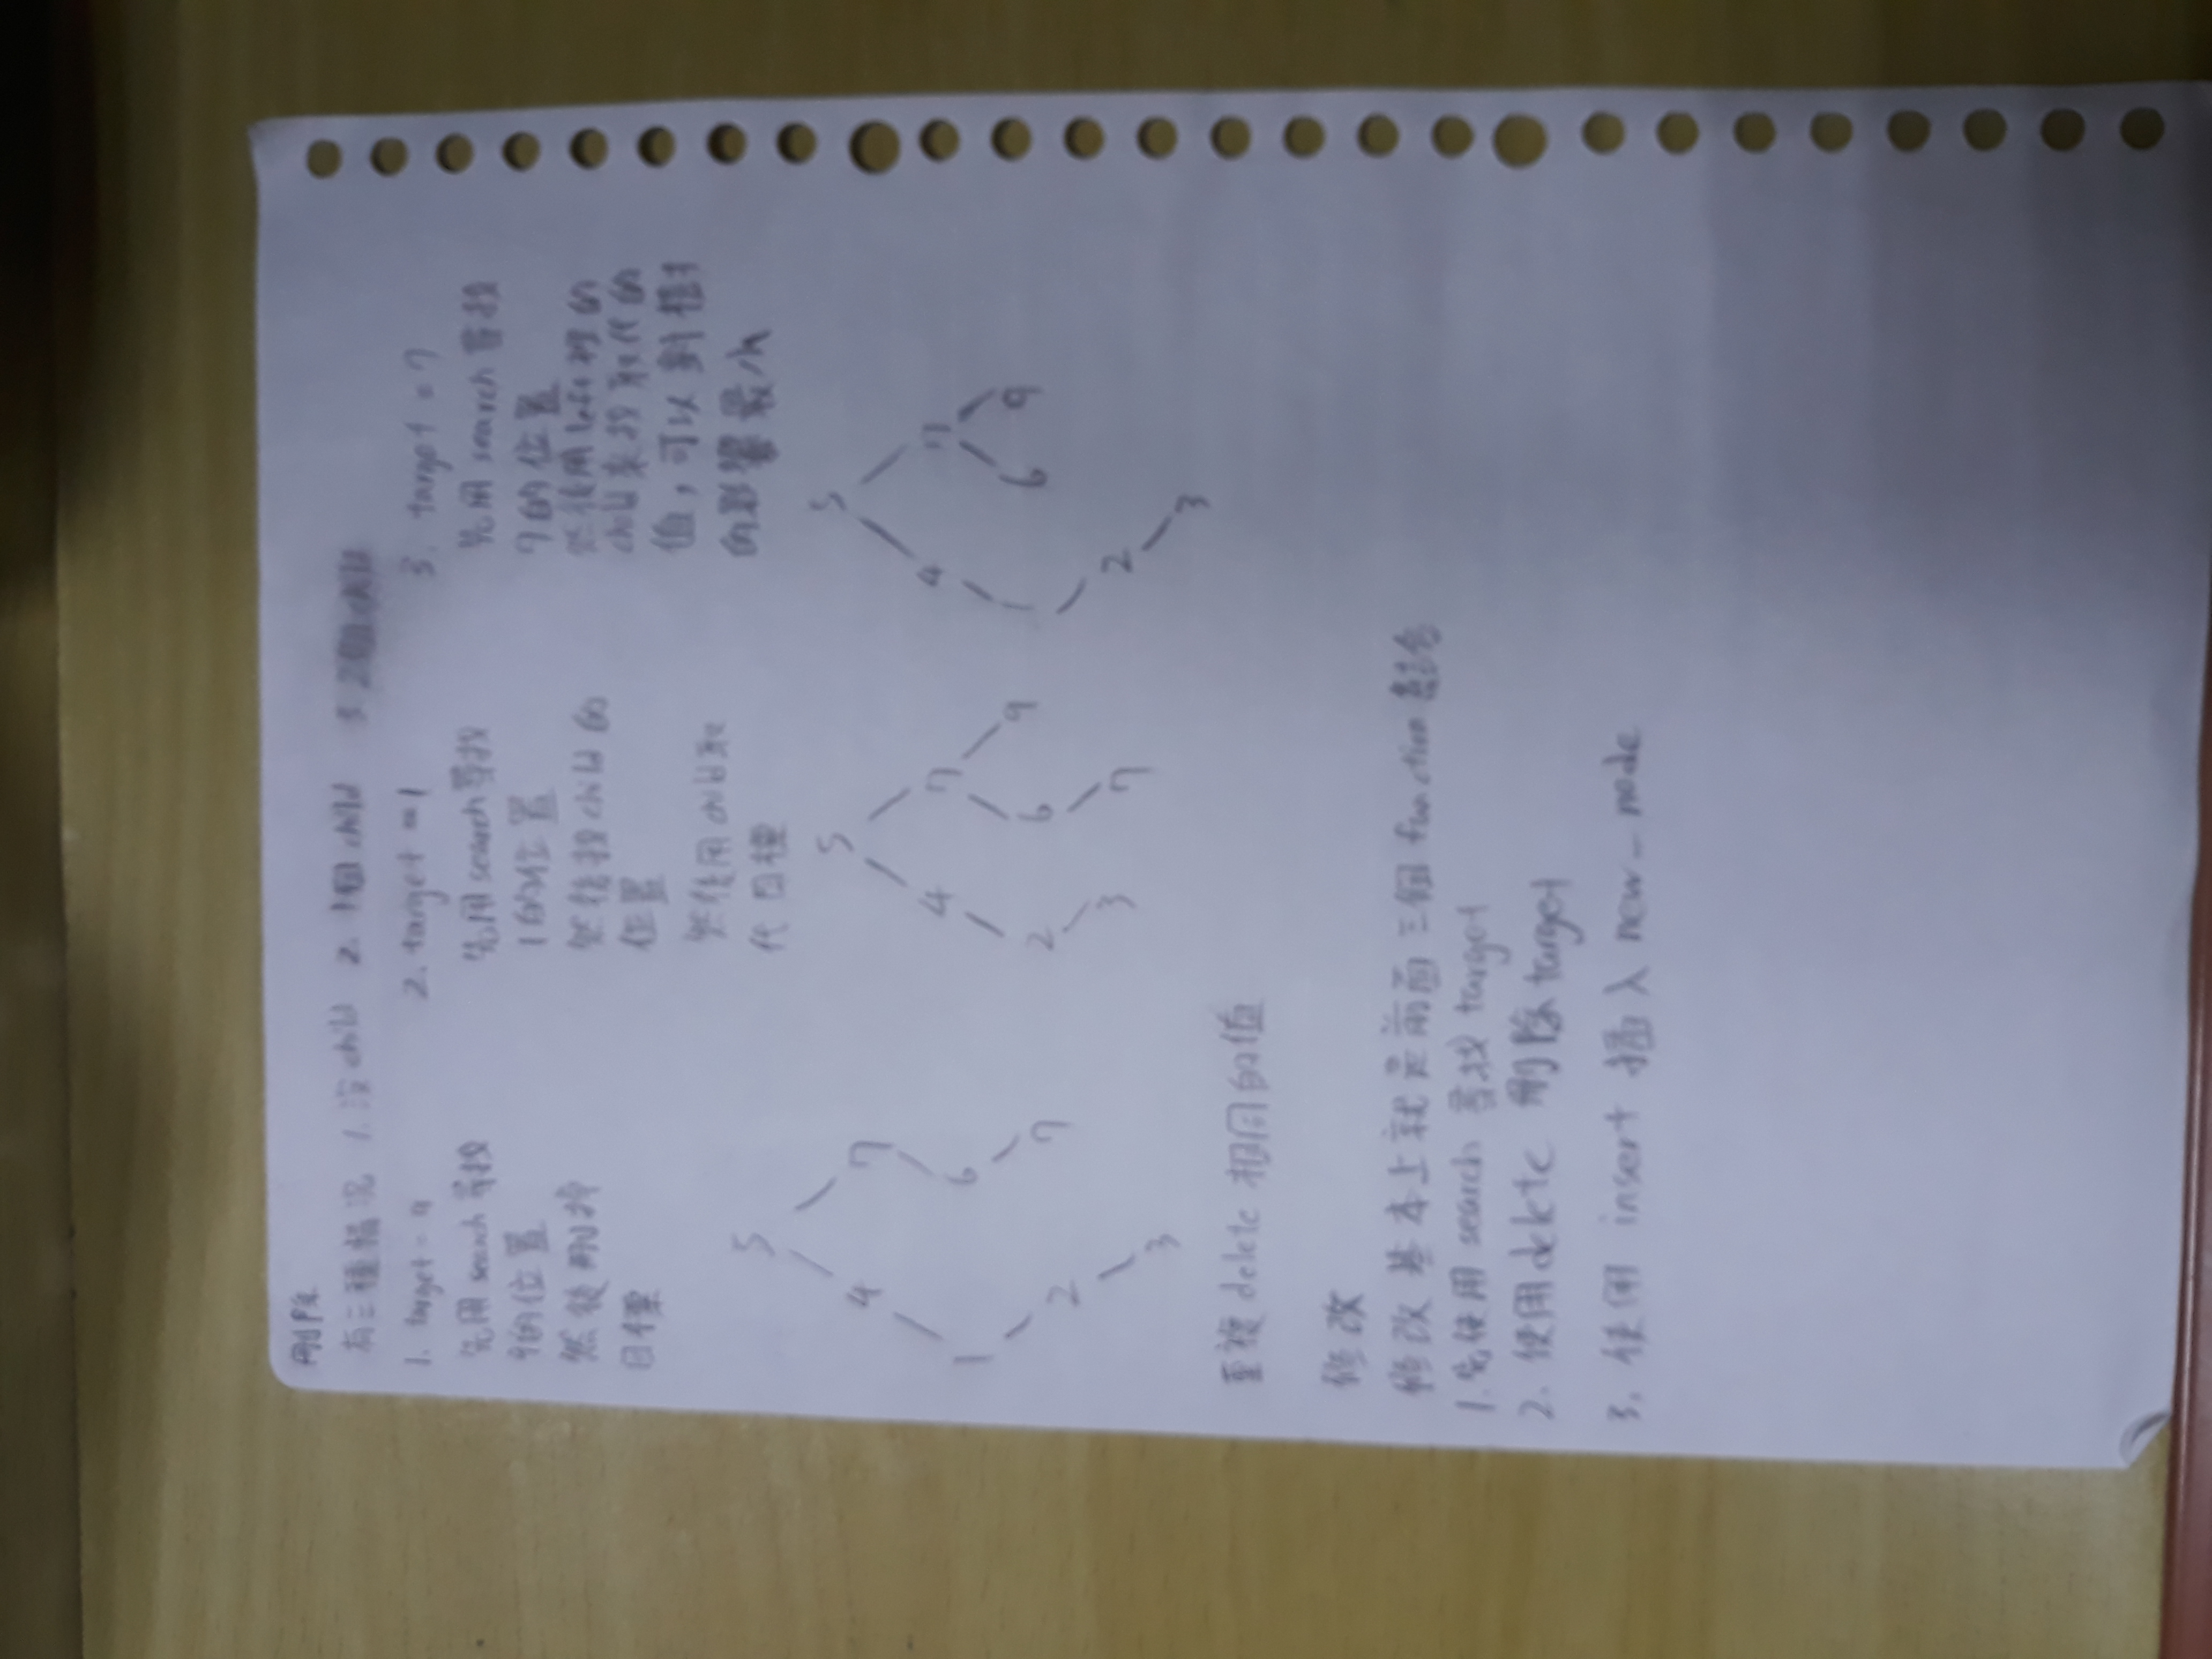 刪除
有三種情況 1. 沒child 2. 1個child 3. 2個child
1. target = 9
先用search尋找
9的位置
然後刪掉
目標
5
4 7
1 6
2 7
3
2. target = 1
先用search尋找
1的位置
然後找child的
位置
然後用child取
代目標
5
4 7
2 6 9
3 7
3. target = 7
先用search尋找
7的位置
然後用left裡的
child來找取代的
值,可以對樹
的影響最小
5
4 7
1 6 9
2
3
重複delete相同的值
修改
修改基本上就是前面三個function結合
1.先使用search尋找target
2. 使用delete 刪除target
3. 使用 insert 插入 new_node